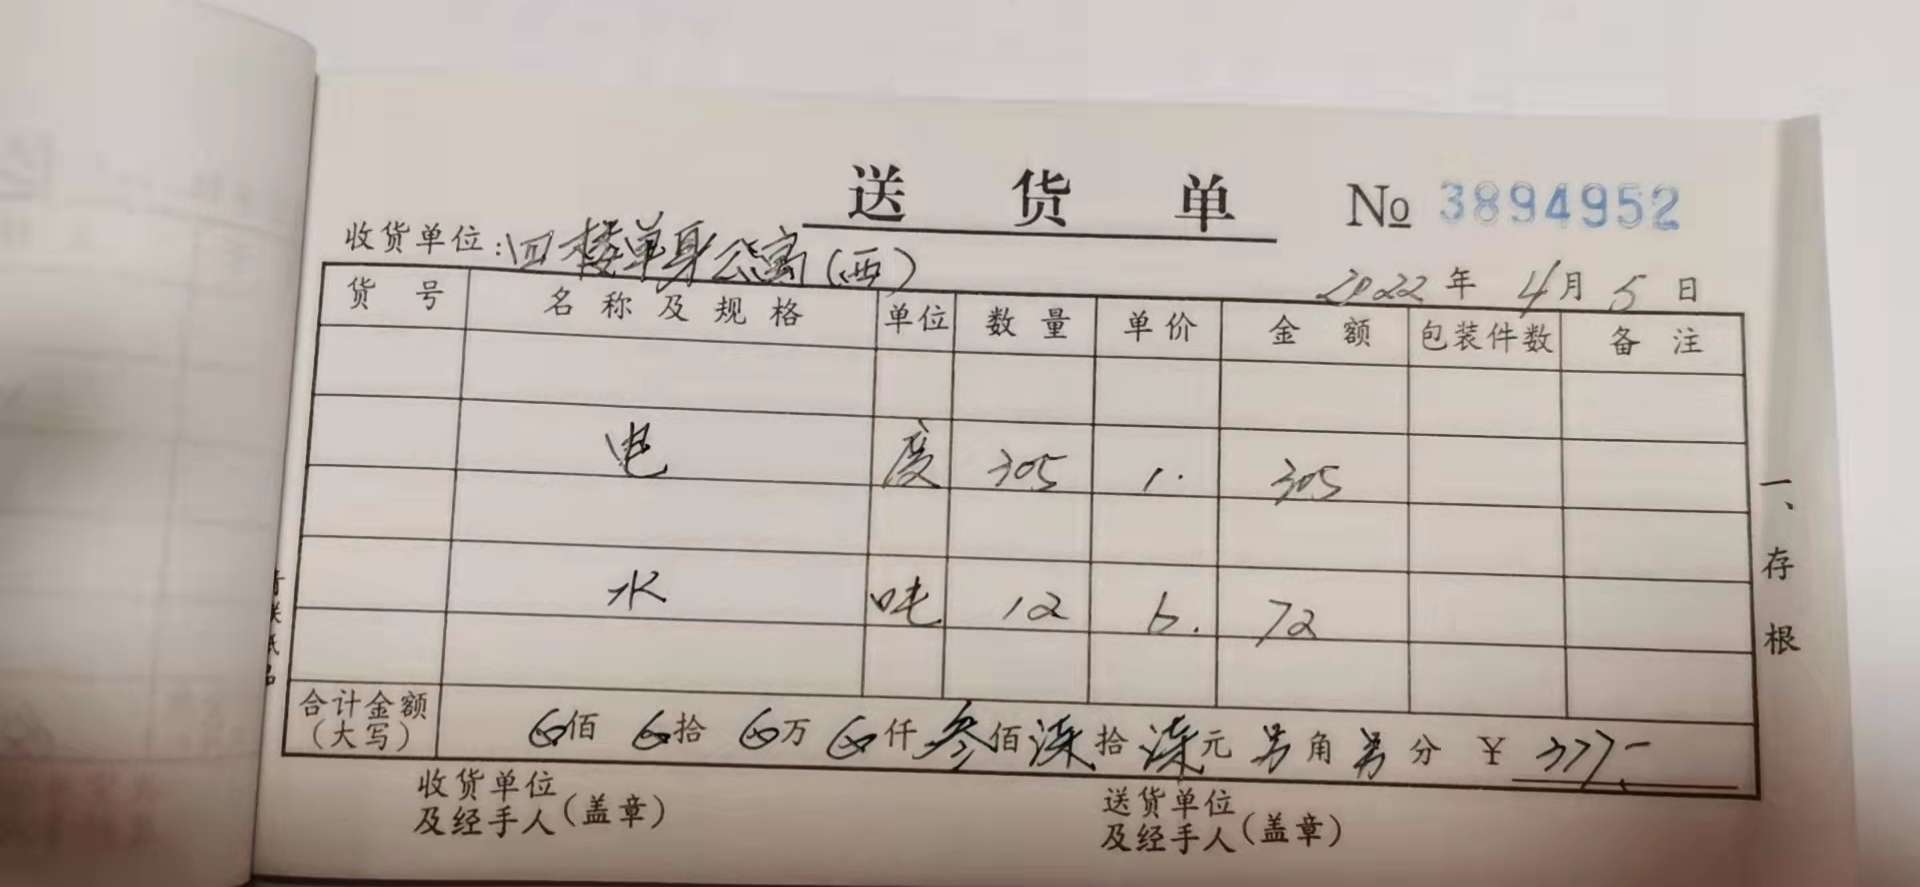 送货单 № 3894952
收货单位:四楼单身公寓(西)
2022年4月5日
货号 名称及规格 单位 数量 单价 金额 包装件数 备注
电 度 305 1. 305
水 吨 12 6. 72
合计金额(大写) 佰 拾 万 仟 叁佰柒拾柒元 角 分 ¥ 377.-
收货单位及经手人(盖章)
送货单位及经手人(盖章)
一、存根